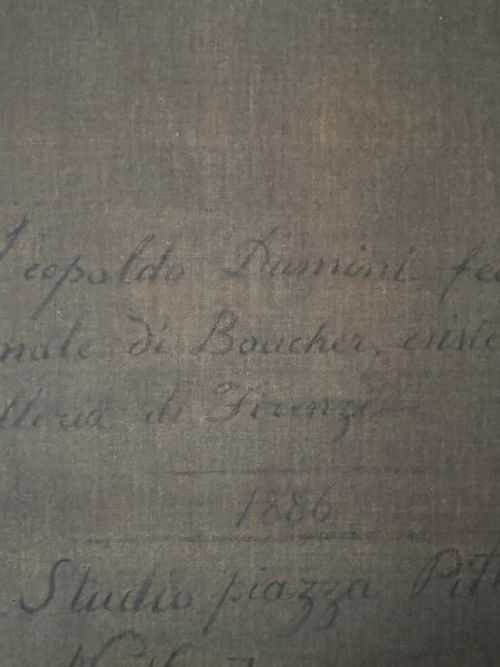 Leopoldo Dumini fec
nale di Boucher, esiste
lleria di Firenze
1886
Studio piazza Pit